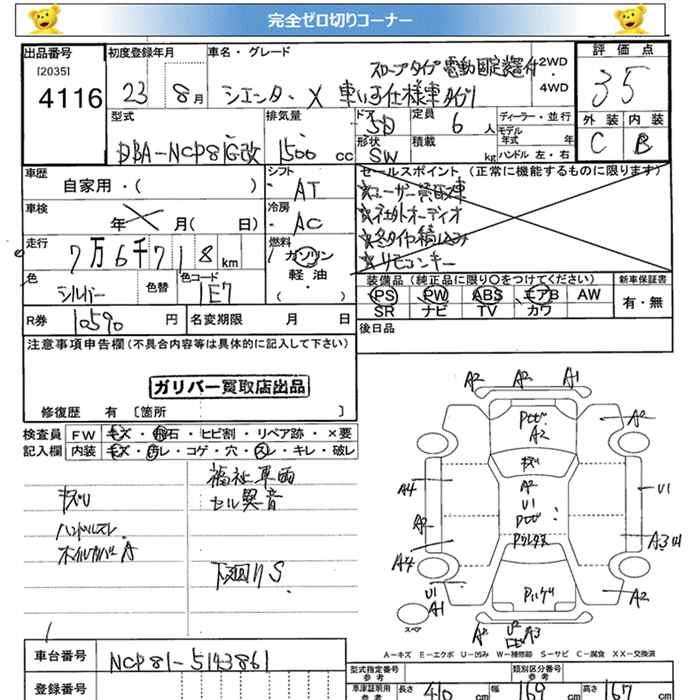 完全ゼロ切りコーナー
出品番号
[2035]
4116
初度登録年月
23 8月
車名・グレード
スロープタイプ 電動固定装置付
シエンタ X 車いす仕様車タイプI
2WD
・
4WD
評価点
3.5
外装 内装
C B
型式
DBA-NCP81G改
排気量
1500 cc
ドア
5D
形状
SW
定員
6人
積載
kg
ディーラー・並行
モデル
年式 年
ハンドル 左・右
車歴
自家用・( )
シフト
AT
車検
年 月( 日)
冷房
AC
走行
7万6千718km
燃料
ガソリン
軽油
・
( )
色
シルバー
色替
色コード
1E7
R券 10590 円
名変期限 月 日
セールスポイント (正常に機能するものに限ります)
☆ユーザー買取車
☆社外オーディオ
☆冬タイヤ積込み
☆リモコンキー
装備品(純正品に限り○をつけてください)
PS PW ABS エアB AW
SR ナビ TV カワ
新車保証書
有・無
後日品
注意事項申告欄(不具合内容等は具体的に記入して下さい)
ガリバー買取店出品
修復歴 有 [箇所 ]
検査員
記入欄
FW キズ・飛石・ヒビ割・リペア跡・×要
内装 キズ・汚レ・コゲ・穴・スレ・キレ・破レ
キズU
ハンドルスレ
ホイルカバーA
福祉車両
セル異音
下廻りS
A2 A2 A1
A2
A2
キズ
A4
A2
U1
U1
A2
A4
A3
U1
A1
A2
A2
U2
A3
スペア
A－キズ E－エクボ U－凹み W－補修跡 S－サビ C－腐食 XX－交換済
車台番号
NCP81-5143861
登録番号
型式指定番号
参考
類別区分番号
参考
車庫証明用
参考
長さ 410 cm
幅 169 cm
高さ 167 cm